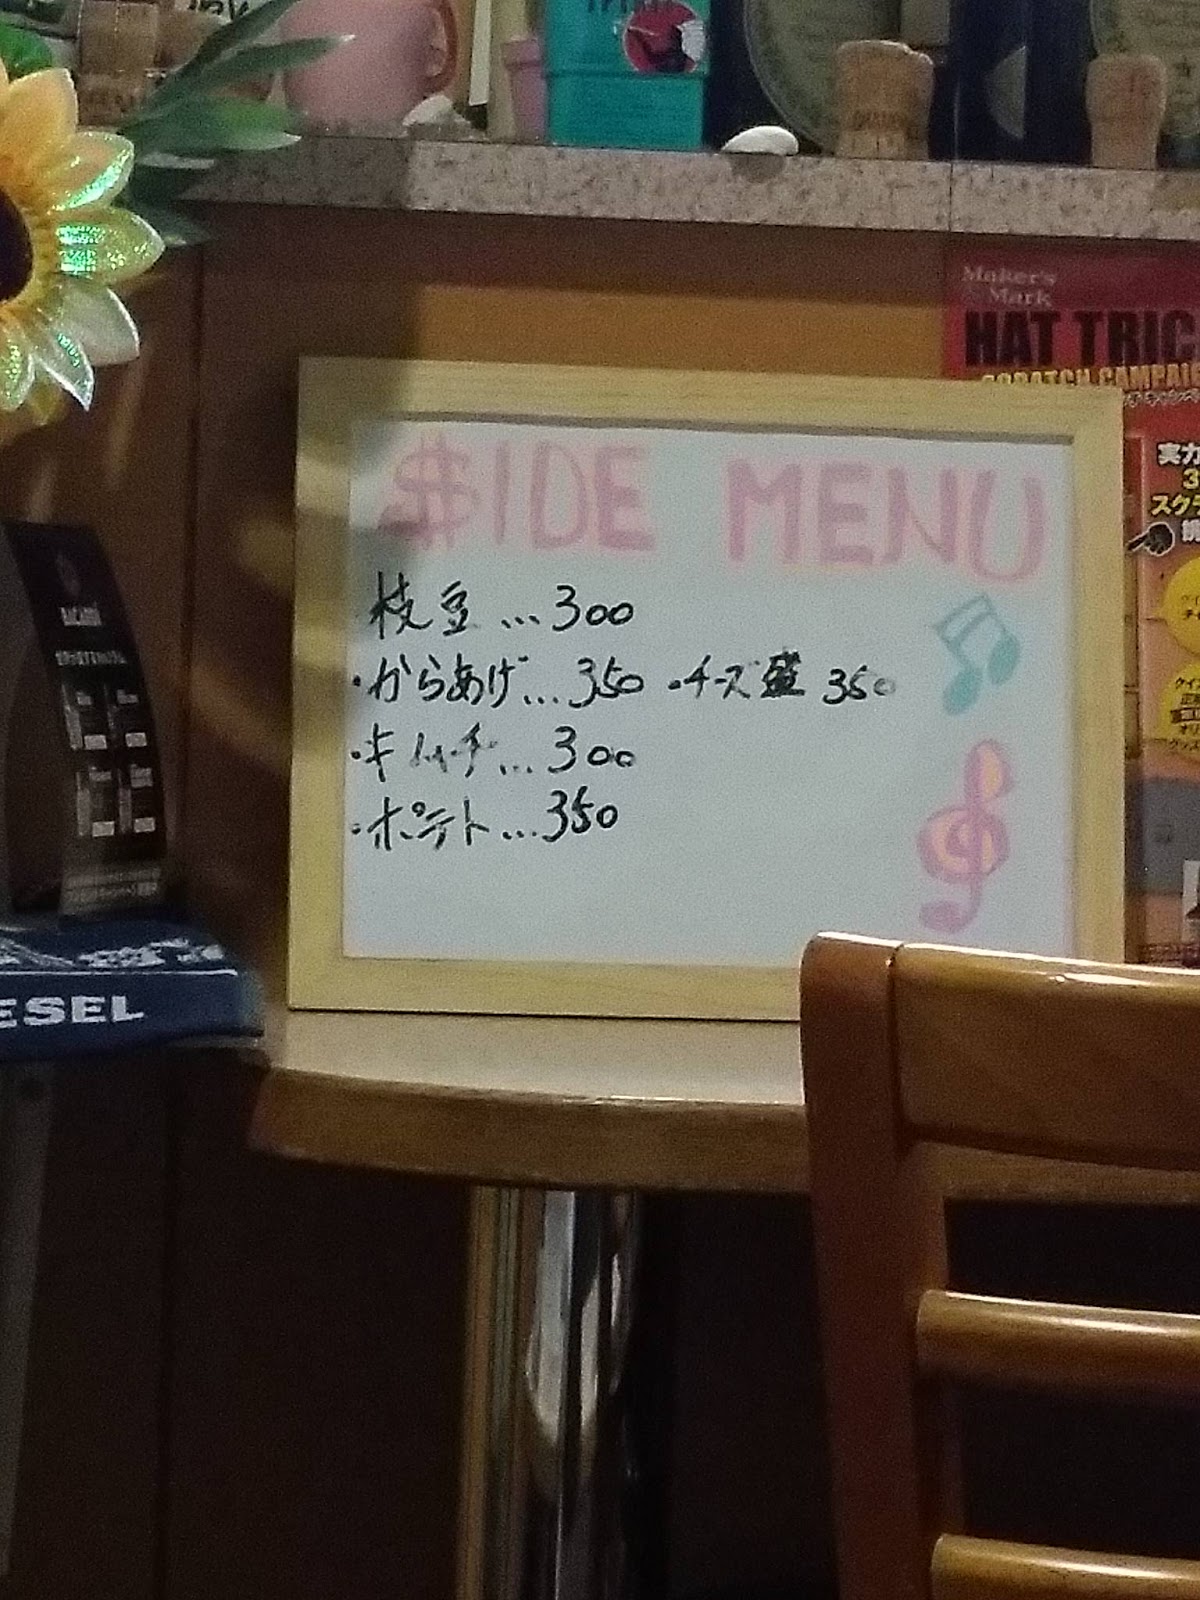 Maker's
Mark
HAT TRIC
SCRATCH CAMPAI
実力
3
スクラ
$IDE MENU
枝豆...300
・からあげ...350 ・チーズ盛 350
・キムチ...300
・ポテト...350
BACARDI
ESEL